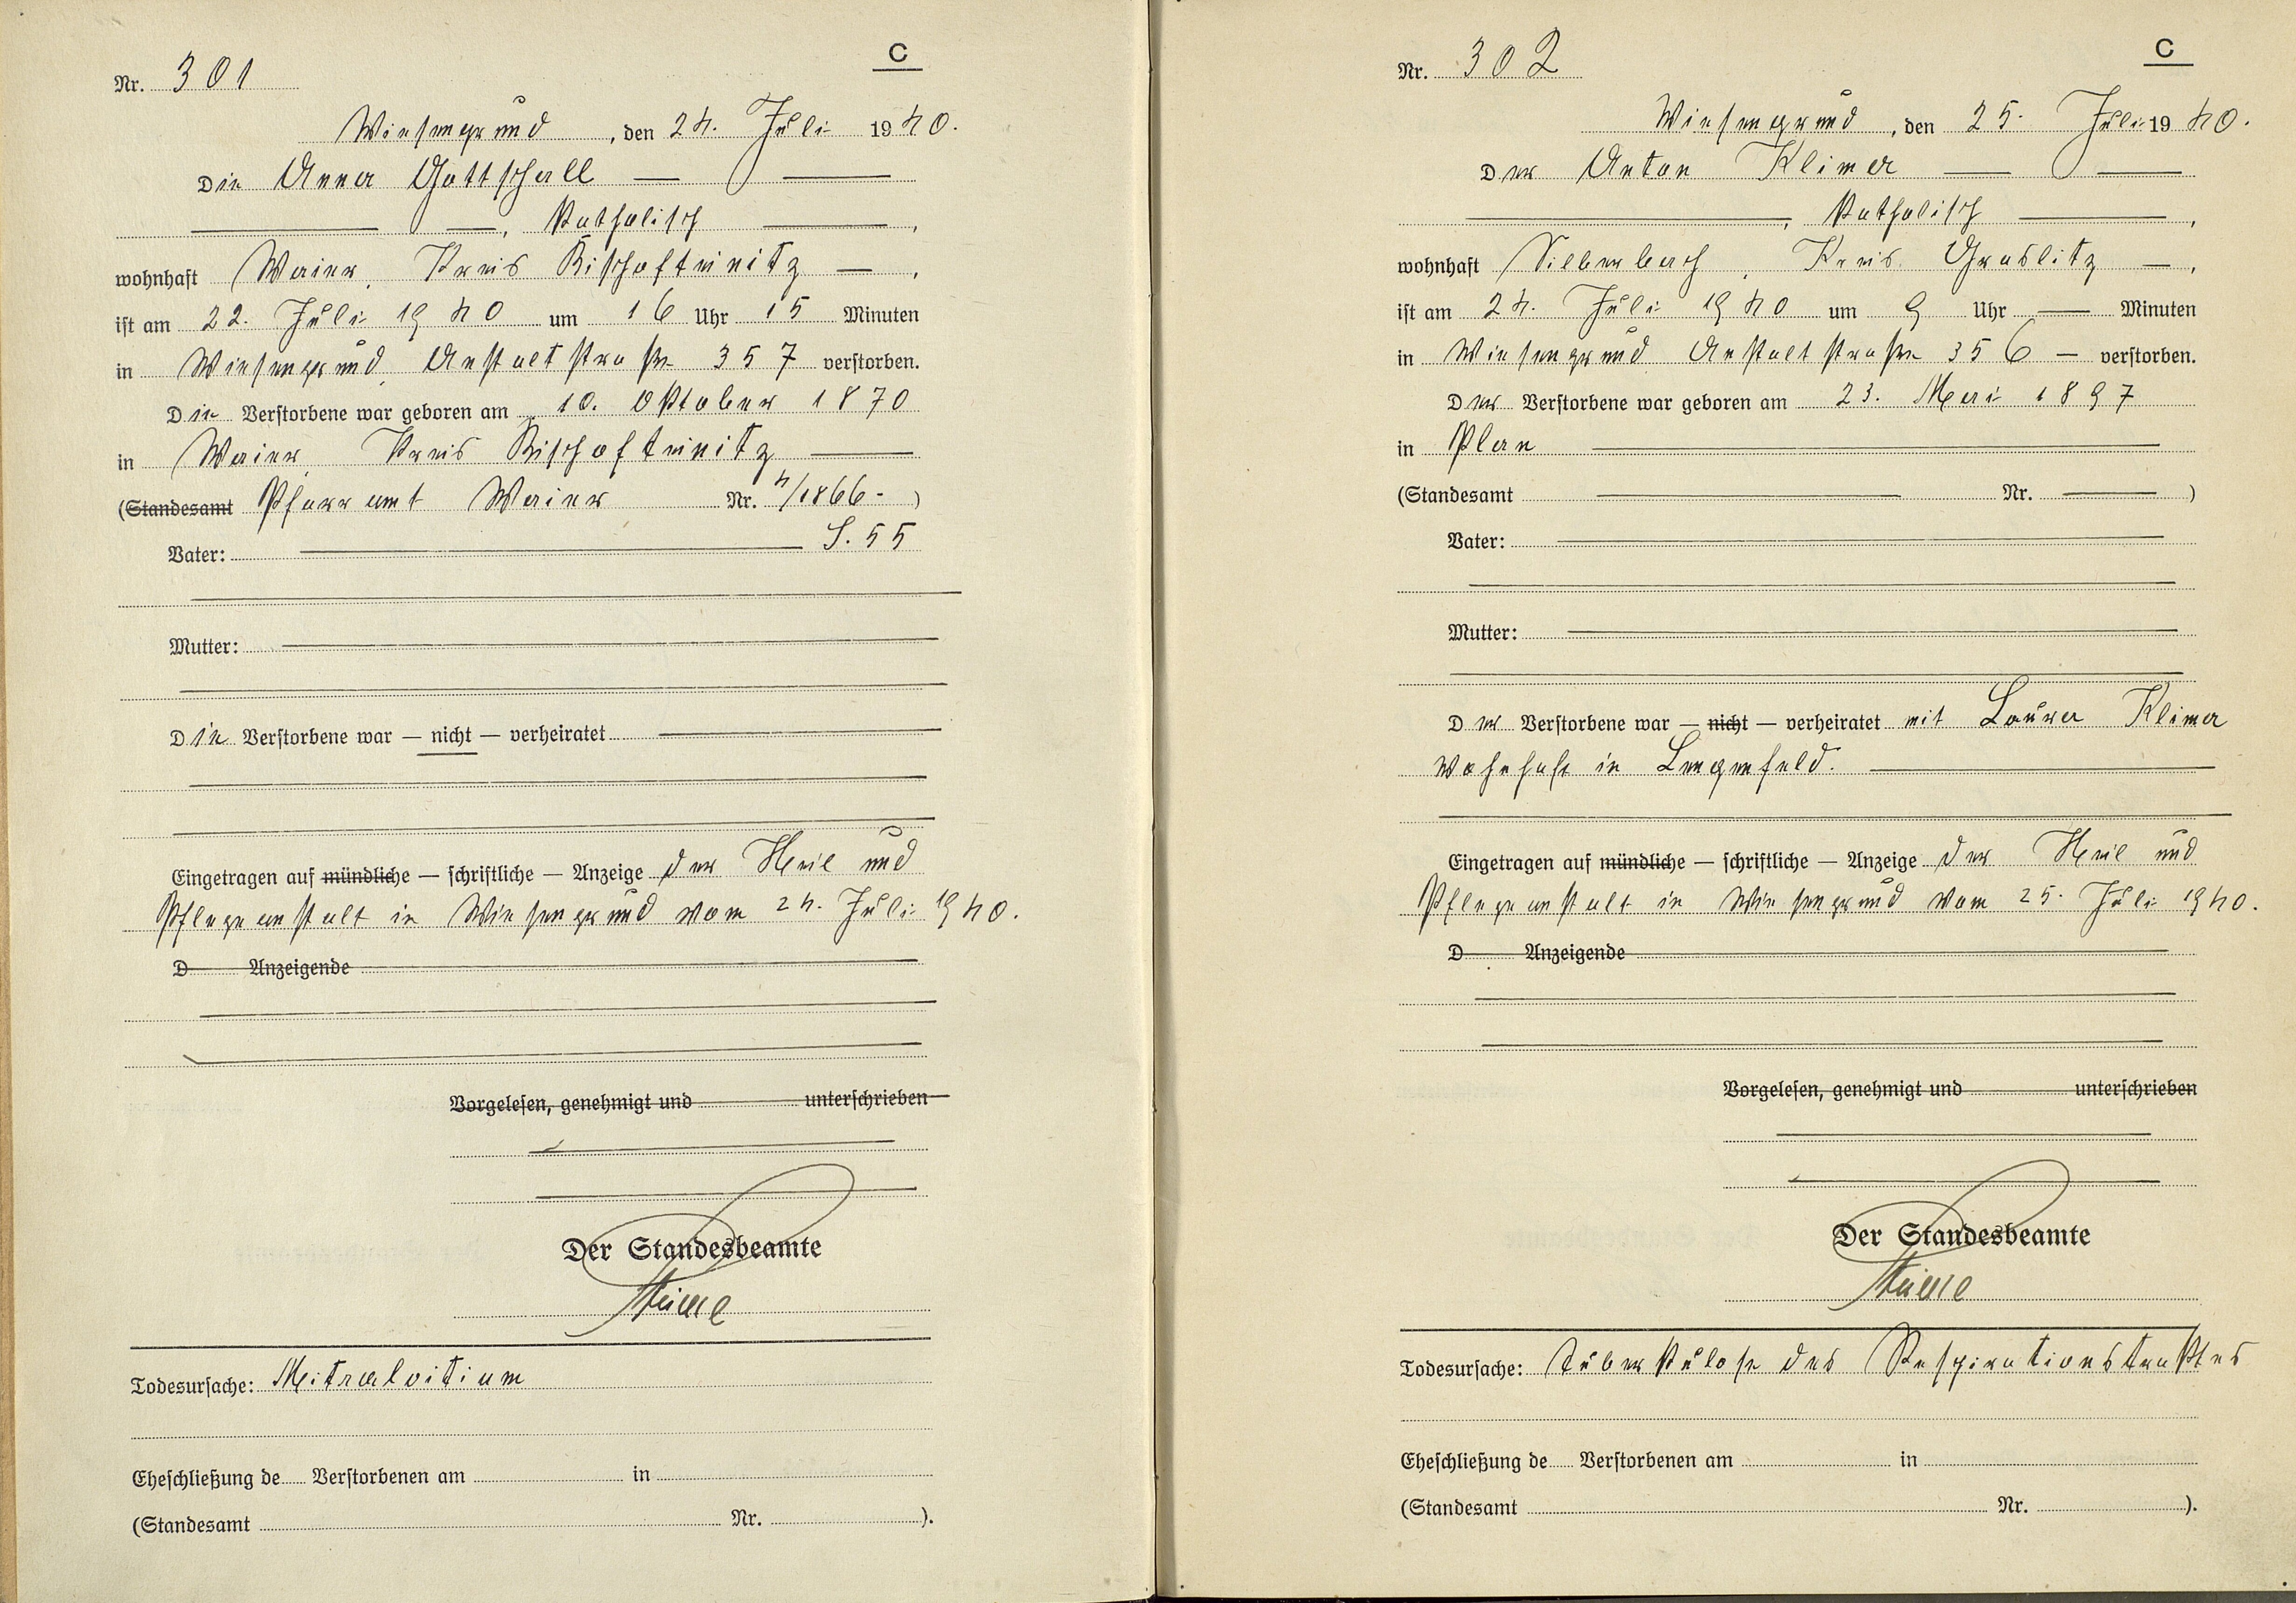 C
Nr. 301
Wiesengrund, den 24. Juli 1940.
Die Anna Gottschall
, katholisch,
wohnhaft Waier, Kreis Bischofteinitz,
ist am 22. Juli 1940 um 16 Uhr 15 Minuten
in Wiesengrund, Anstaltstraße 357 verstorben.
Die Verstorbene war geboren am 10. Oktober 1870
in Waier, Kreis Bischofteinitz
(Standesamt Pfarramt Waier Nr. 4/1866-)
S. 55
Vater:
Mutter:
Die Verstorbene war — nicht — verheiratet
Eingetragen auf mündliche — schriftliche — Anzeige der Heil und
Pflegeanstalt in Wiesengrund vom 24. Juli 1940.
D Anzeigende
Vorgelesen, genehmigt und unterschrieben
Der Standesbeamte
Todesursache: Mitralvitium
Eheschließung de Verstorbenen am in
(Standesamt Nr. ).
C
Nr. 302
Wiesengrund, den 25. Juli 1940.
Der Anton Klima
, katholisch,
wohnhaft Silberbach, Kreis Graslitz,
ist am 24. Juli 1940 um 9 Uhr — Minuten
in Wiesengrund Anstaltstraße 356 — verstorben.
Der Verstorbene war geboren am 23. Mai 1897
in Plan
(Standesamt Nr. )
Vater:
Mutter:
Der Verstorbene war — nicht — verheiratet mit Laura Klima
wohnhaft in Lengenfeld.
Eingetragen auf mündliche — schriftliche — Anzeige der Heil und
Pflegeanstalt in Wiesengrund vom 25. Juli 1940.
D Anzeigende
Vorgelesen, genehmigt und unterschrieben
Der Standesbeamte
Todesursache: Tuberkulose des Respirationstraktes
Eheschließung de Verstorbenen am in
(Standesamt Nr. ).